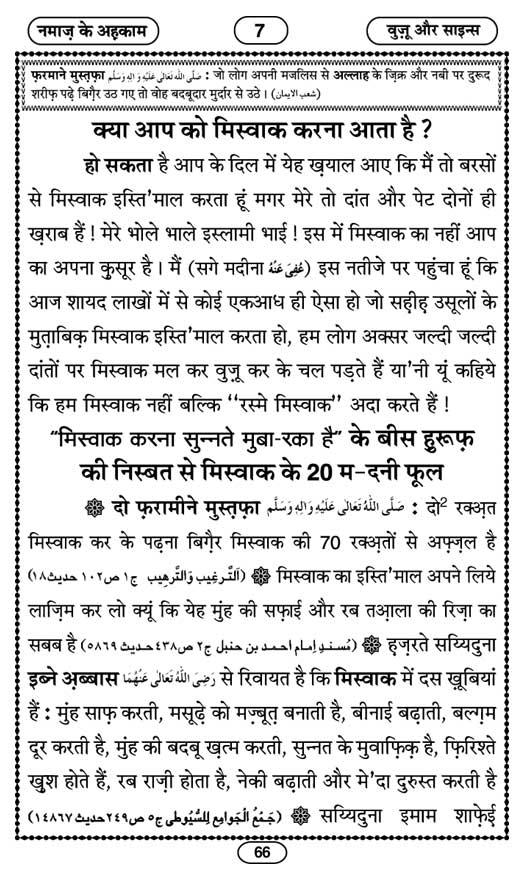 नमाज़ के अहकाम
7
वुज़ू और साइन्स
फ़रमाने मुस्तफ़ा صَلَّى اللّٰهُ تَعَالٰى عَلَيْهِ وَاٰلِهٖ وَسَلَّم : जो लोग अपनी मजलिस से अल्लाह के ज़िक्र और नबी पर दुरूद
शरीफ़ पढ़े बिग़ैर उठ गए तो वोह बदबूदार मुर्दार से उठे । (شعب الایمان)
क्या आप को मिस्वाक करना आता है ?
हो सकता है आप के दिल में येह ख़याल आए कि मैं तो बरसों
से मिस्वाक इस्ति'माल करता हूं मगर मेरे तो दांत और पेट दोनों ही
ख़राब हैं ! मेरे भोले भाले इस्लामी भाई ! इस में मिस्वाक का नहीं आप
का अपना क़ुसूर है । मैं (सगे मदीना عُفِیَ عَنْهُ) इस नतीजे पर पहुंचा हूं कि
आज शायद लाखों में से कोई एकआध ही ऐसा हो जो सह़ीह़ उसूलों के
मुत़ाबिक़ मिस्वाक इस्ति'माल करता हो, हम लोग अक्सर जल्दी जल्दी
दांतों पर मिस्वाक मल कर वुज़ू कर के चल पड़ते हैं या'नी यूं कहिये
कि हम मिस्वाक नहीं बल्कि ‘‘रस्मे मिस्वाक’’ अदा करते हैं !
“मिस्वाक करना सुन्नते मुबा-रका है” के बीस ह़ुरूफ़
की निस्बत से मिस्वाक के 20 म-दनी फूल
❁ दो फ़रामीने मुस्त़फ़ा صَلَّى اللّٰهُ تَعَالٰى عَلَيْهِ وَاٰلِهٖ وَسَلَّم : दो² रक्अ़त
मिस्वाक कर के पढ़ना बिग़ैर मिस्वाक की 70 रक्अ़तों से अफ़्ज़ल है
(اَلتَّرغِیب وَالتَّرهِیب ج۱ ص۱۰۲ حدیث۱۸) ❁ मिस्वाक का इस्ति'माल अपने लिये
लाज़िम कर लो क्यूं कि येह मुंह की सफ़ाई और रब तआ़ला की रिज़ा का
सबब है (مُسندِ اِمام احمد بن حنبل ج۲ ص۴۳۸ حدیث ۵۸۶۹) ❁ ह़ज़रते सय्यिदुना
इब्ने अ़ब्बास رَضِیَ اللّٰهُ تَعَالٰی عَنْهُمَا से रिवायत है कि मिस्वाक में दस ख़ूबियां
हैं : मुंह साफ़ करती, मसूढ़े को मज़्बूत़ बनाती है, बीनाई बढ़ाती, बल्ग़म
दूर करती है, मुंह की बदबू ख़त्म करती, सुन्नत के मुवाफ़िक़ है, फ़िरिश्ते
ख़ुश होते हैं, रब राज़ी होता है, नेकी बढ़ाती और मे'दा दुरुस्त करती है
(جَمْعُ الْجَوامِع لِلسُّیُوطی ج۵ ص۲۴۹حدیث ۱۴۸۶۷) ❁ सय्यिदुना इमाम शाफ़ेई
66